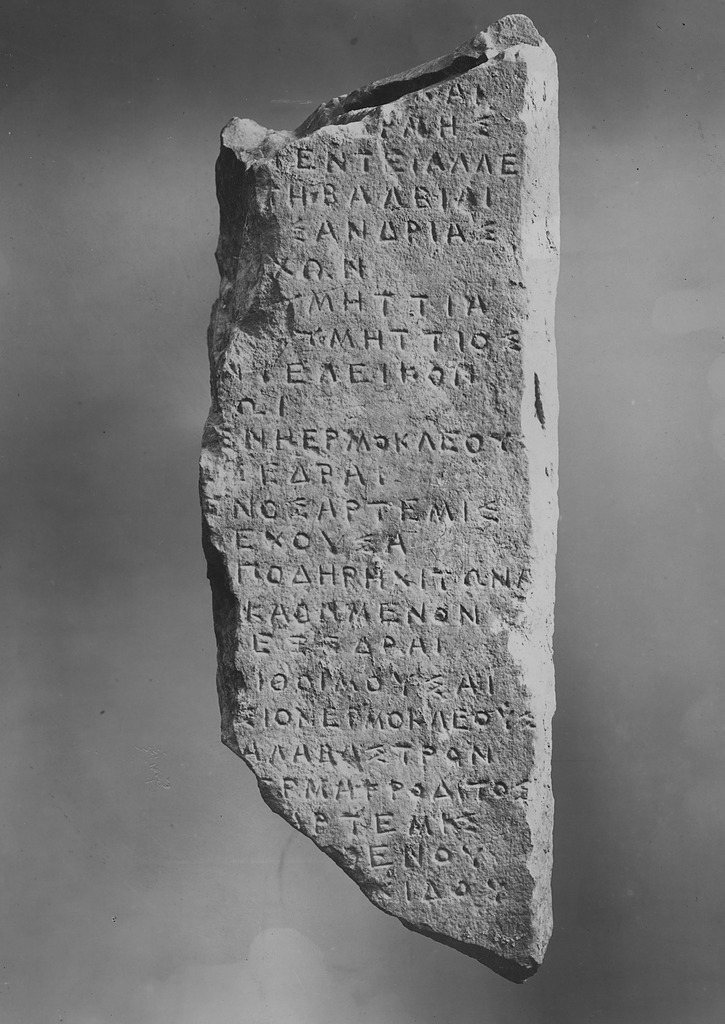 ΑΙ
ΡΜΗΣ
ΕΝΤΕΙΑΛΛΕ
ΤΗΒΑΛΒΙΑΙ
ΞΑΝΔΡΙΑΣ
ΧΩΝ
ΤΜΗΤΤΙΑ
ΤΜΗΤΤΙΟΣ
ΠΕΛΕΙΚΟΝ
ΩΙ
ΕΝΗΕΡΜΟΚΛΕΟΥ
ΕΔΡΑΙ
ΝΟΣΑΡΤΕΜΙΣ
ΕΧΟΥΣΑ
ΠΟΔΗΡΗΧΙΤΩΝΑ
ΚΑΘΗΜΕΝΟΝ
ΕΞΕΔΡΑΙ
ΙΘΟΙΜΟΥΣΑΙ
ΣΙΟΝΕΡΜΟΚΛΕΟΥΣ
ΑΛΑΒΑΣΤΡΟΝ
ΕΡΜΑΦΡΟΔΙΤΟΣ
ΑΡΤΕΜΙΣ
ΕΝΟΥ
ΙΔΟΥ